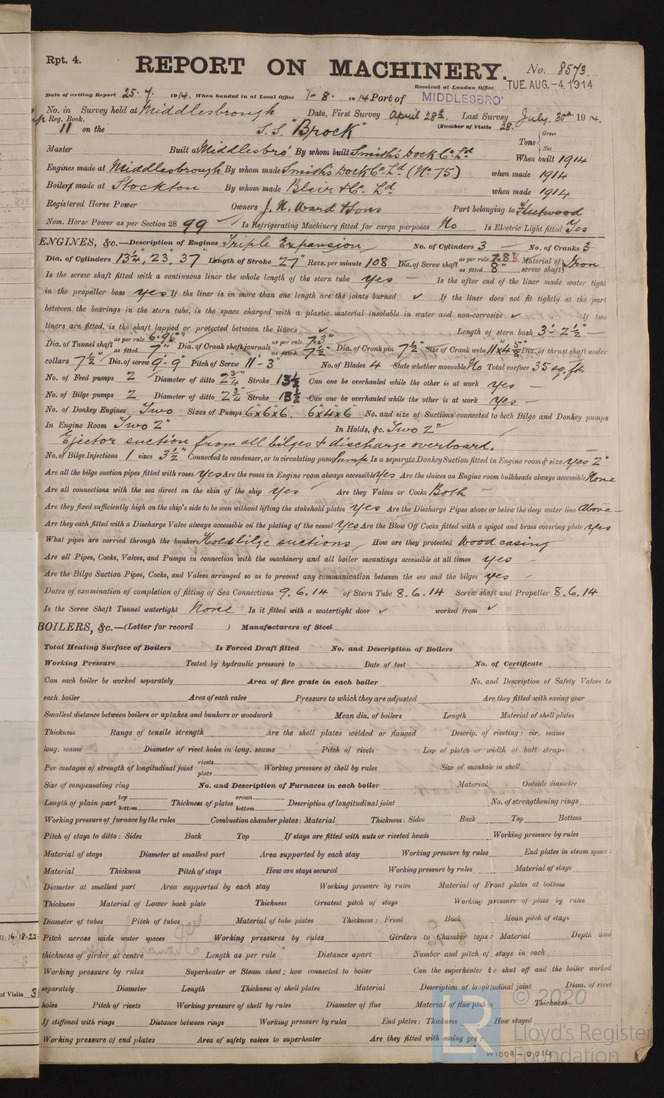 Rpt. 4.
REPORT ON MACHINERY.
No. 8573
TUE. AUG. -4.1914
Date of writing Report 25.7. 1914. When handed in at Local Office 1-8. 1914 Port of MIDDLESBRO'
Received at London Office
No. in Survey held at Middlesbrough Date, First Survey April 28th Last Survey July 30th 1914.
Reg. Book.
(Number of Visits 28.
11 on the S.S. "Brock"
Tons Gross Net
Master Built at Middlesbro' By whom built Smith's Dock Co Ld When built 1914
Engines made at Middlesbrough By whom made Smith's Dock Co Ld (No 75) when made 1914
Boilers made at Stockton By whom made Blair & Co. Ld. when made 1914
Registered Horse Power Owners J. N. Ward & Sons Port belonging to Fleetwood
Nom. Horse Power as per Section 28 99 Is Refrigerating Machinery fitted for cargo purposes No Is Electric Light fitted Yes
ENGINES, &c.—Description of Engines Triple Expansion No. of Cylinders 3 No. of Cranks 3
Dia. of Cylinders 13½", 23", 37" Length of Stroke 27" Revs. per minute 108 Dia. of Screw shaft as per rule as fitted 8" Material of screw shaft Iron
Is the screw shaft fitted with a continuous liner the whole length of the stern tube yes Is the after end of the liner made water tight
in the propeller boss yes If the liner is in more than one length are the joints burned ✓ If the liner does not fit tightly at the part
between the bearings in the stern tube, is the space charged with a plastic material insoluble in water and non-corrosive ✓ If two
liners are fitted, is the shaft lapped or protected between the liners ✓ Length of stern bush 3'-2½"
Dia. of Tunnel shaft as per rule 6.92" as fitted 7" Dia. of Crank shaft journals as per rule 7.3" as fitted 7½" Dia. of Crank pin 7½" Size of Crank webs Dia. of thrust shaft under
collars 7½" Dia. of screw 9'-9" Pitch of Screw 11'-3" No. of Blades 4 State whether moveable No Total surface 35 sq.ft
No. of Feed pumps 2 Diameter of ditto 2¾" Stroke 13½ Can one be overhauled while the other is at work yes
No. of Bilge pumps 2 Diameter of ditto 2¾" Stroke 13½ Can one be overhauled while the other is at work yes
No. of Donkey Engines Two Sizes of Pumps 6"x6"x6". 6"x4"x6" No. and size of Suctions connected to both Bilge and Donkey pumps
In Engine Room Two 2" In Holds, &c. Two 2"
Ejector suction from all bilges & discharge overboard.
No. of Bilge Injections 1 sizes 3½" Connected to condenser, or to circulating pump Pump Is a separate Donkey Suction fitted in Engine room & size yes 2"
Are all the bilge suction pipes fitted with roses yes Are the roses in Engine room always accessible yes Are the sluices on Engine room bulkheads always accessible None
Are all connections with the sea direct on the skin of the ship yes Are they Valves or Cocks Both
Are they fixed sufficiently high on the ship's side to be seen without lifting the stokehold plates yes Are the Discharge Pipes above or below the deep water line Above
Are they each fitted with a Discharge Valve always accessible on the plating of the vessel yes Are the Blow Off Cocks fitted with a spigot and brass covering plate yes
What pipes are carried through the bunkers Hold bilge suctions How are they protected Wood casing
Are all Pipes, Cocks, Valves, and Pumps in connection with the machinery and all boiler mountings accessible at all times yes
Are the Bilge Suction Pipes, Cocks, and Valves arranged so as to prevent any communication between the sea and the bilges yes
Dates of examination of completion of fitting of Sea Connections 9.6.14 of Stern Tube 8.6.14 Screw shaft and Propeller 8.6.14
Is the Screw Shaft Tunnel watertight None Is it fitted with a watertight door ✓ worked from ✓
BOILERS, &c.—(Letter for record ) Manufacturers of Steel
Total Heating Surface of Boilers Is Forced Draft fitted No. and Description of Boilers
Working Pressure Tested by hydraulic pressure to Date of test No. of Certificate
Can each boiler be worked separately Area of fire grate in each boiler No. and Description of Safety Valves to
each boiler Area of each valve Pressure to which they are adjusted Are they fitted with easing gear
Smallest distance between boilers or uptakes and bunkers or woodwork Mean dia. of boilers Length Material of shell plates
Thickness Range of tensile strength Are the shell plates welded or flanged Descrip. of riveting: cir. seams
long. seams Diameter of rivet holes in long. seams Pitch of rivets Lap of plates or width of butt straps
Per centages of strength of longitudinal joint rivets plate Working pressure of shell by rules Size of manhole in shell
Size of compensating ring No. and Description of Furnaces in each boiler Material Outside diameter
Length of plain part top bottom Thickness of plates crown bottom Description of longitudinal joint No. of strengthening rings
Working pressure of furnace by the rules Combustion chamber plates: Material Thickness: Sides Back Top Bottom
Pitch of stays to ditto: Sides Back Top If stays are fitted with nuts or riveted heads Working pressure by rules
Material of stays Diameter at smallest part Area supported by each stay Working pressure by rules End plates in steam space:
Material Thickness Pitch of stays How are stays secured Working pressure by rules Material of stays
Diameter at smallest part Area supported by each stay Working pressure by rules Material of Front plates at bottom
Thickness Material of Lower back plate Thickness Greatest pitch of stays Working pressure of plate by rules
Diameter of tubes Pitch of tubes Material of tube plates Thickness: Front Back Mean pitch of stays
Pitch across wide water spaces Working pressures by rules Girders to Chamber tops: Material Depth and
thickness of girder at centre Length as per rule Distance apart Number and pitch of stays in each
Working pressure by rules Superheater or Steam chest; how connected to boiler Can the superheater be shut off and the boiler worked
separately Diameter Length Thickness of shell plates Material Description of longitudinal joint Diam. of rivet
holes Pitch of rivets Working pressure of shell by rules Diameter of flue Material of flue plates Thickness
If stiffened with rings Distance between rings Working pressure by rules End plates: Thickness How stayed
Working pressure of end plates Area of safety valves to superheater Are they fitted with easing gear
16.18.22
of Visits 3
© 2020
LR
Lloyd's Register
Foundation
W1009-0014